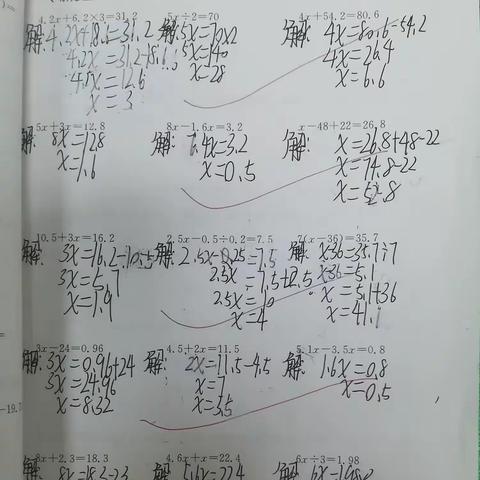 4.2x+6.2×3=31.2
5x÷2=70
4x+54.2=80.6
解:4.2x+18.6=31.2
解:5x=70×2
解: 4x=80.6-54.2
4.2x=31.2-18.6
5x=140
4x=26.4
=12.6
x=28
x=6.6
x=3
5x+3x=12.8
8x-1.6x=3.2
x-48+22=26.8
解: 8x=12.8
解: 6.4x=3.2
解: x=26.8+48-22
x=1.6
x=0.5
x=74.8-22
x=52.8
10.5+3x=16.2
2.5x-0.5÷0.2=7.5
7(x-36)=35.7
解: 3x=16.2-10.5
解: 2.5x-
=7.5
解: x-36=35.7÷7
3x=5.7
2.5x
=7.5+2.5
x-36=5.1
x=1.9
2.5x=10
x=5.1+36
x=4
x=41.1
3x-24=0.96
4.5+2x=11.5
5.1x-3.5x=0.8
解: 3x=0.96+24
解: 2x=11.5-4.5
解: 1.6x=0.8
3x=24.96
x=7
x=0.5
x=8.32
x=3.5
-19.
8x+2.3=18.3
4.6x+x=22.4
6x÷3=1.98
解: 8x=18.3-2.3
解: 5.6x=22.4
解: 6x=1.98×